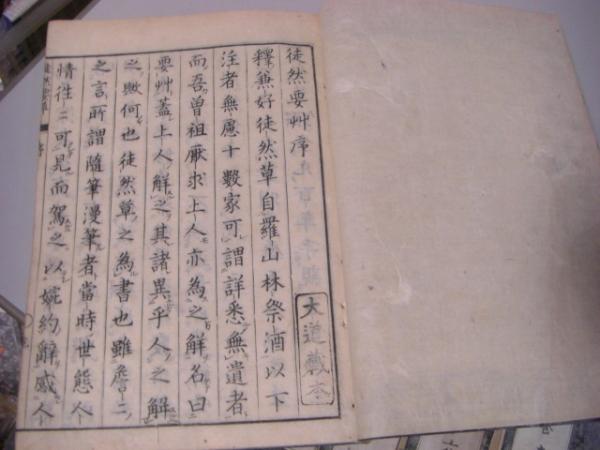 徒然要艸序
釋兼好徒然草自羅山林祭酒以下
注者無慮十數家可謂詳悉無遺者
而吾曾祖厭求上人亦為之解名曰
要艸蓋上人解之其諸異乎人之解
之歟何也徒然草之為書也雖詹二
之言所謂隨筆漫筆者當時世態人
情徃二可見而駕之以婉約辭感人
大道藏本